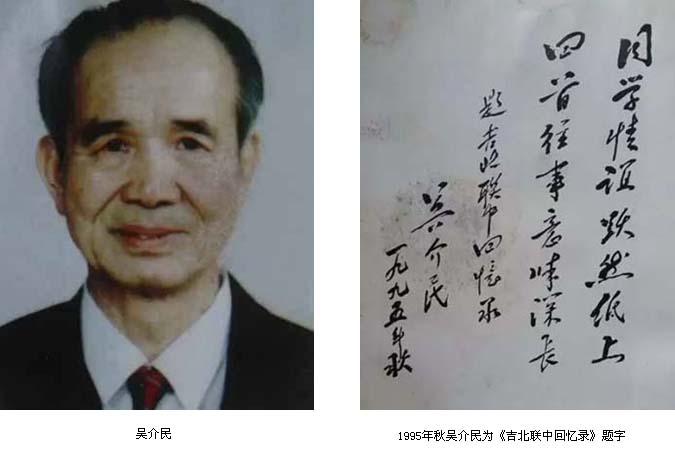 同学情谊跃然纸上
回首往事意味深长
题吉北联中回忆录
吴介民
一九九五年秋
吴介民
1995年秋吴介民为《吉北联中回忆录》题字